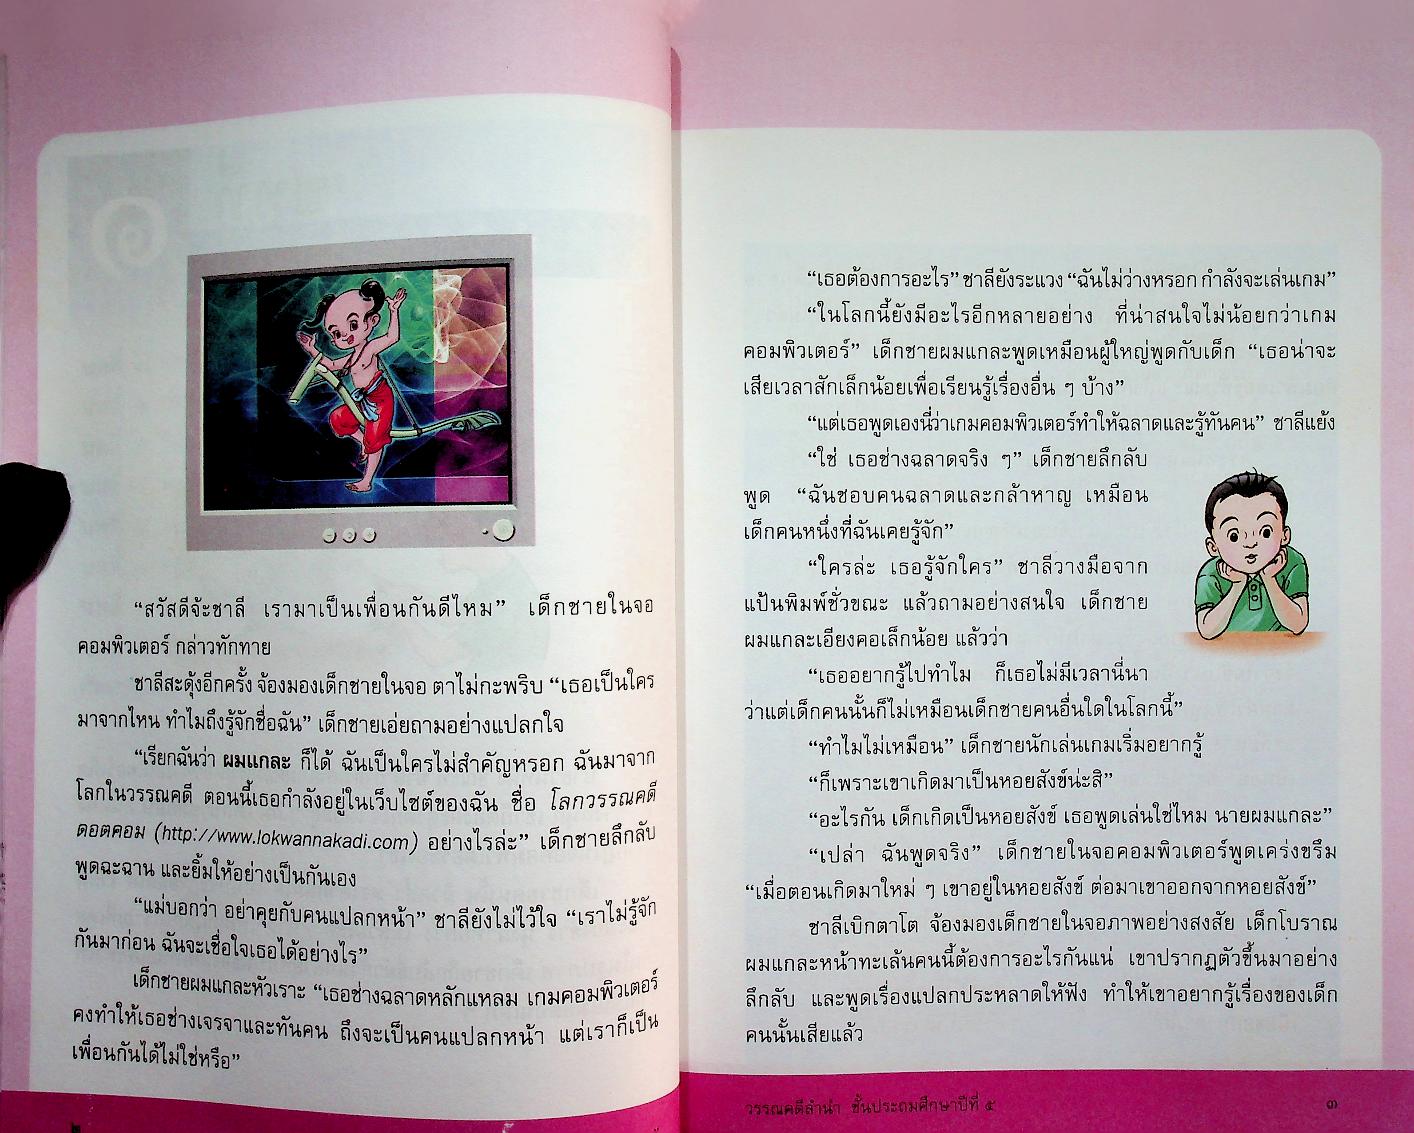 “สวัสดีจ้ะชาลี เรามาเป็นเพื่อนกันดีไหม” เด็กชายในจอ
คอมพิวเตอร์ กล่าวทักทาย
ชาลีสะดุ้งอีกครั้ง จ้องมองเด็กชายในจอ ตาไม่กะพริบ “เธอเป็นใคร
มาจากไหน ทำไมถึงรู้จักชื่อฉัน” เด็กชายเอ่ยถามอย่างแปลกใจ
“เรียกฉันว่า ผมแกละ ก็ได้ ฉันเป็นใครไม่สำคัญหรอก ฉันมาจาก
โลกในวรรณคดี ตอนนี้เธอกำลังอยู่ในเว็บไซต์ของฉัน ชื่อ โลกวรรณคดี
ดอตคอม (http://www.lokwannakadi.com) อย่างไรล่ะ” เด็กชายลึกลับ
พูดฉะฉาน และยิ้มให้อย่างเป็นกันเอง
“แม่บอกว่า อย่าคุยกับคนแปลกหน้า” ชาลียังไม่ไว้ใจ “เราไม่รู้จัก
กันมาก่อน ฉันจะเชื่อใจเธอได้อย่างไร”
เด็กชายผมแกละหัวเราะ “เธอช่างฉลาดหลักแหลม เกมคอมพิวเตอร์
คงทำให้เธอช่างเจรจาและทันคน ถึงจะเป็นคนแปลกหน้า แต่เราก็เป็น
เพื่อนกันได้ไม่ใช่หรือ”
๒
“เธอต้องการอะไร” ชาลียังระแวง “ฉันไม่ว่างหรอก กำลังจะเล่นเกม”
“ในโลกนี้ยังมีอะไรอีกหลายอย่าง ที่น่าสนใจไม่น้อยกว่าเกม
คอมพิวเตอร์” เด็กชายผมแกละพูดเหมือนผู้ใหญ่พูดกับเด็ก “เธอน่าจะ
เสียเวลาสักเล็กน้อยเพื่อเรียนรู้เรื่องอื่น ๆ บ้าง”
“แต่เธอพูดเองนี่ว่าเกมคอมพิวเตอร์ทำให้ฉลาดและรู้ทันคน” ชาลีแย้ง
“ใช่ เธอช่างฉลาดจริง ๆ” เด็กชายลึกลับ
พูด “ฉันชอบคนฉลาดและกล้าหาญ เหมือน
เด็กคนหนึ่งที่ฉันเคยรู้จัก”
“ใครล่ะ เธอรู้จักใคร” ชาลีวางมือจาก
แป้นพิมพ์ชั่วขณะ แล้วถามอย่างสนใจ เด็กชาย
ผมแกละเอียงคอเล็กน้อย แล้วว่า
“เธออยากรู้ไปทำไม ก็เธอไม่มีเวลานี่นา
ว่าแต่เด็กคนนั้นก็ไม่เหมือนเด็กชายคนอื่นใดในโลกนี้”
“ทำไมไม่เหมือน” เด็กชายนักเล่นเกมเริ่มอยากรู้
“ก็เพราะเขาเกิดมาเป็นหอยสังข์น่ะสิ”
“อะไรกัน เด็กเกิดเป็นหอยสังข์ เธอพูดเล่นใช่ไหม นายผมแกละ”
“เปล่า ฉันพูดจริง” เด็กชายในจอคอมพิวเตอร์พูดเคร่งขรึม
“เมื่อตอนเกิดมาใหม่ ๆ เขาอยู่ในหอยสังข์ ต่อมาเขาออกจากหอยสังข์”
ชาลีเบิกตาโต จ้องมองเด็กชายในจอภาพอย่างสงสัย เด็กโบราณ
ผมแกละหน้าทะเล้นคนนี้ต้องการอะไรกันแน่ เขาปรากฏตัวขึ้นมาอย่าง
ลึกลับ และพูดเรื่องแปลกประหลาดให้ฟัง ทำให้เขาอยากรู้เรื่องของเด็ก
คนนั้นเสียแล้ว
วรรณคดีลำนำ ชั้นประถมศึกษาปีที่ ๕ ๓